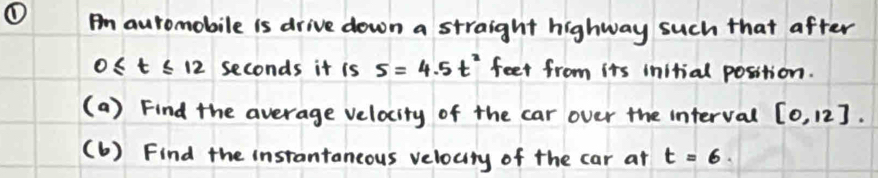 ① An automobile is drive down a straight highway such that after
0 ≤ t ≤ 12 seconds it is s = 4.5t² feet from its initial position.
(a) Find the average velocity of the car over the interval [0,12].
(b) Find the instantaneous velocity of the car at t = 6.